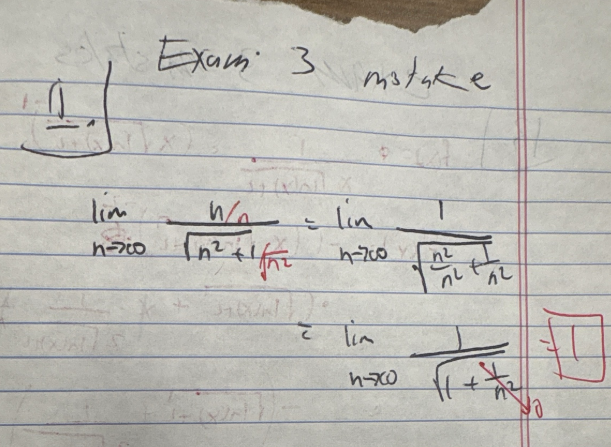 Exam 3 mistake
1.
lim n→∞ n/n / √(n² + 1)/√n² = lim n→∞ 1 / √(n²/n² + 1/n²)
= lim n→∞ 1 / √(1 + 1/n²) → 0 = 1